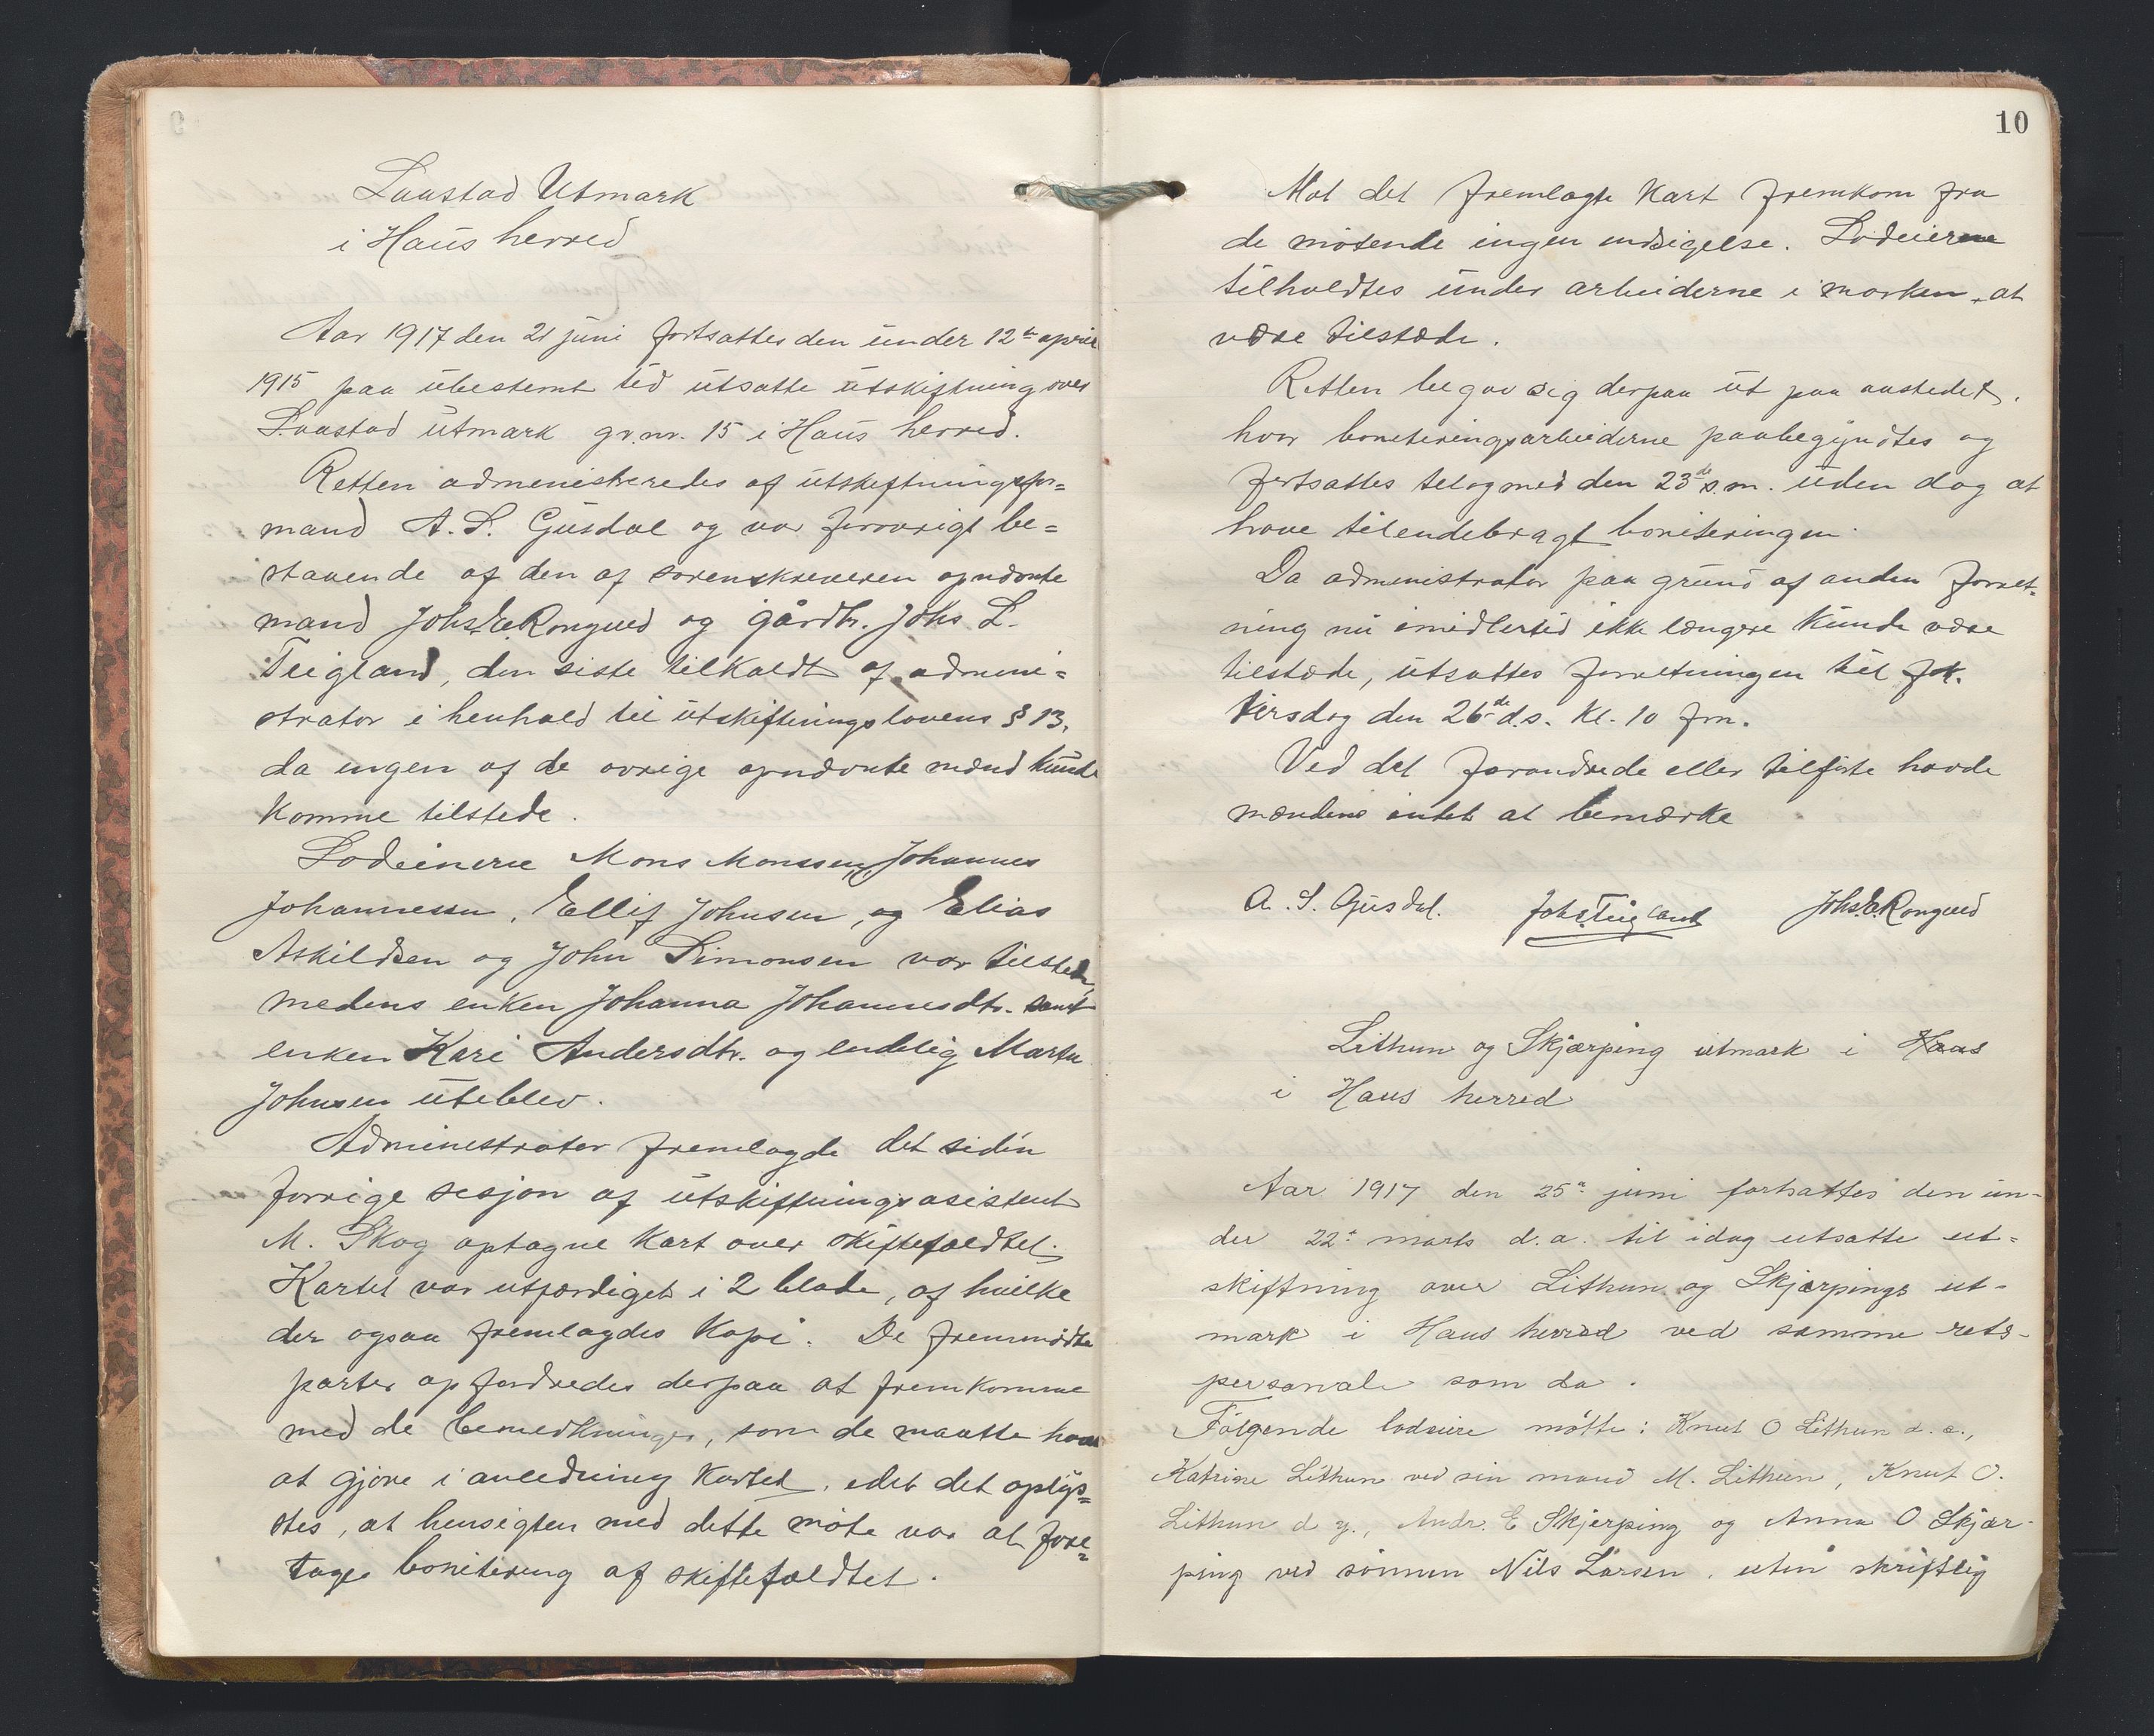 Laastad Utmark
i Haus herred
Aar 1917 den 21 juni fortsattes den under 12te april
1915 paa ubestemt tid utsatte utskiftning over
Laastad utmark gr.nr. 15 i Haus herred.
Retten administreredes af utskiftningsfor=
mand A. S. Gusdal og var forøvrigt be=
staaende af den af sorenskriveren opnævnte
mand Johs. E. Rongved og gårdbr. Johs L.
Teigland, den siste tilkaldt af admini=
strator i henhold til utskiftningslovens § 13,
da ingen af de øvrige opnævnte mænd kunde
komme tilstede.
Lodeierne Mons Monssen, Johannes
Johannessen, Ellif Johnsen, og Elias
Askildsen og John Simonsen var tilstede,
medens enken Johanna Johannesdtr. samt
enken Kari Andersdtr. og endelig Martin
Johnsen uteblev.
Administrator fremlagde det siden
forrige sesjon af utskiftningsasistent
M. Skog optagne kart over skiftefældtet.
Kartet var utfærdiget i 2 blade, af hvilke
der ogsaa fremlagdes kopi. De fremmødte
parter opfordredes derpaa at fremkomme
med de bemerkninger, som de maatte have
at gjøre i anledning kartet, idet det oplys=
stes, at hensigten med dette møte var at fore=
tage bonitering af skiftefældtet.
10
Mot det fremlagte kart fremkom fra
de møtende ingen indsigelse. Lodeierne
tilholdtes under arbeiderne i marken at
være tilstæde.
Retten begav sig derpaa ut paa aastedet,
hvor boniteringsarbeiderne paabegyndtes og
fortsattes tilogmed den 23de s.m. uden dog at
have tilendebragt boniteringen.
Da administrator paa grund af anden forret=
ning nu imidlertid ikke længere kunde være
tilstæde, utsattes forretningen til fok.
tirsdag den 26de d.s. kl. 10 fm.
Ved det forandrede eller tilførte havde
mændene intet at bemærke
A. S. Gusdal. Johs. Teigland Johs. E. Rongved
Lithun og Skjærping utmark i Haas
i Haus herred
Aar 1917 den 25e juni fortsattes den un-
der 22e marts d.a. til idag utsatte ut=
skiftning over Lithun og Skjærpings ut-
mark i Haus herred ved samme rets-
personale som da.
Følgende lodeiere møtte: Knut O Lithun d. e.,
Katrine Lithun ved sin mand M. Lithun, Knut O.
Lithun d y., Andr. E Skjerping og Anna O Skjær-
ping ved sønnen Nils Larsen, uten skriftlig